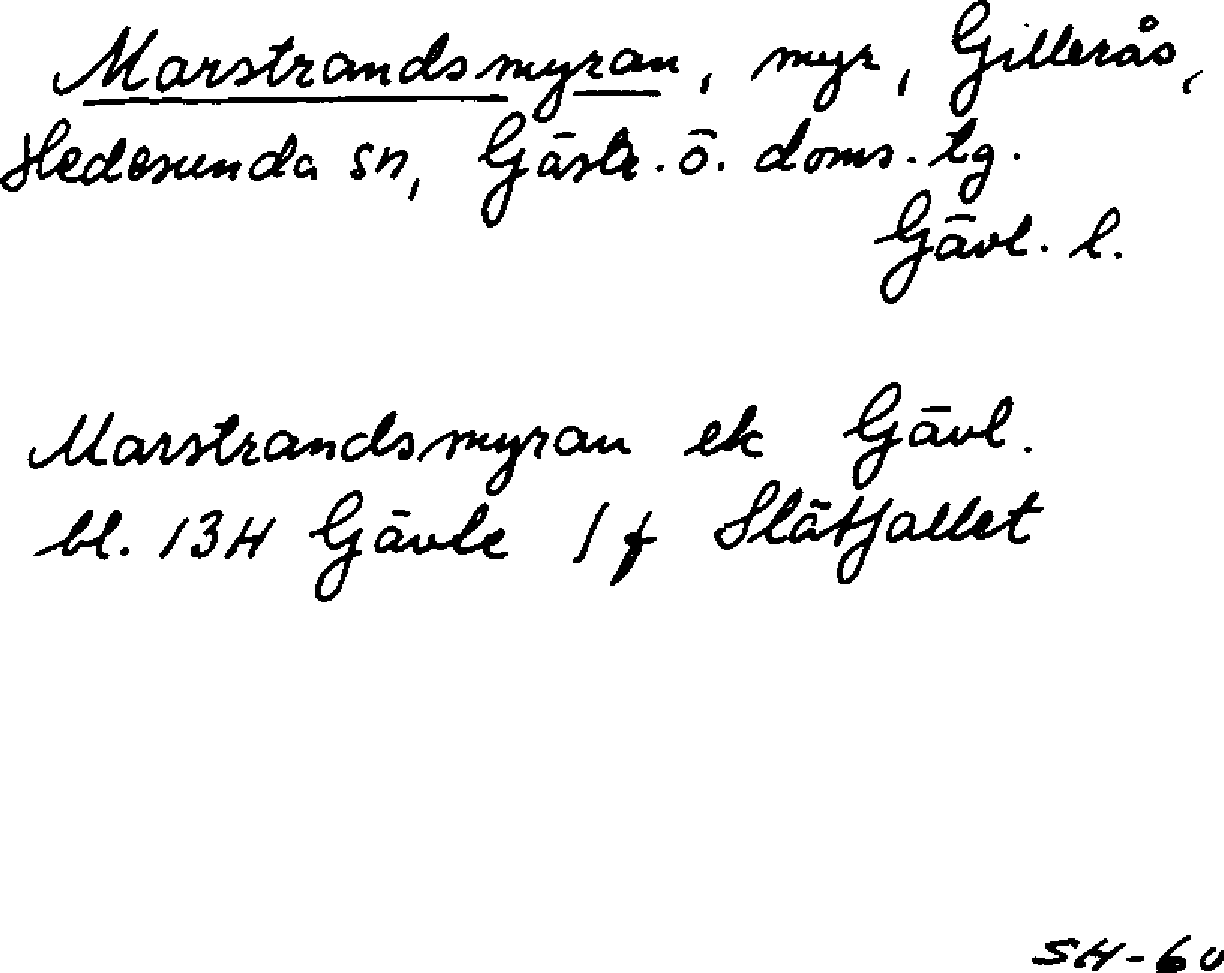 Marstrandsmyran, myr, Gillerås,
Hedesunda sn, Gästr. ö. doms. tg.
Gävl. l.
Marstrandsmyran ek Gävl.
bl. 13H Gävle 1f Slätfallet
SH-60